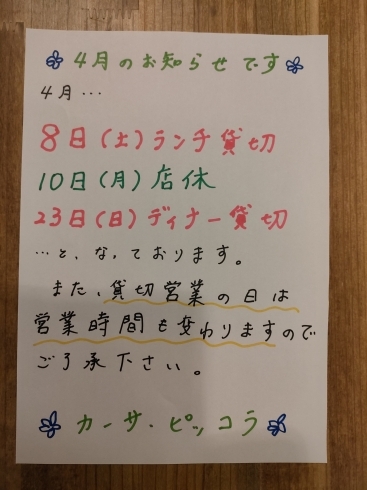 4月のお知らせです
4月…
8日(土)ランチ貸切
10日(月)店休
23日(日)ディナー貸切
…と、なっております。
また、貸切営業の日は
営業時間も変わりますので
ご了承下さい。
カーサ・ピッコラ